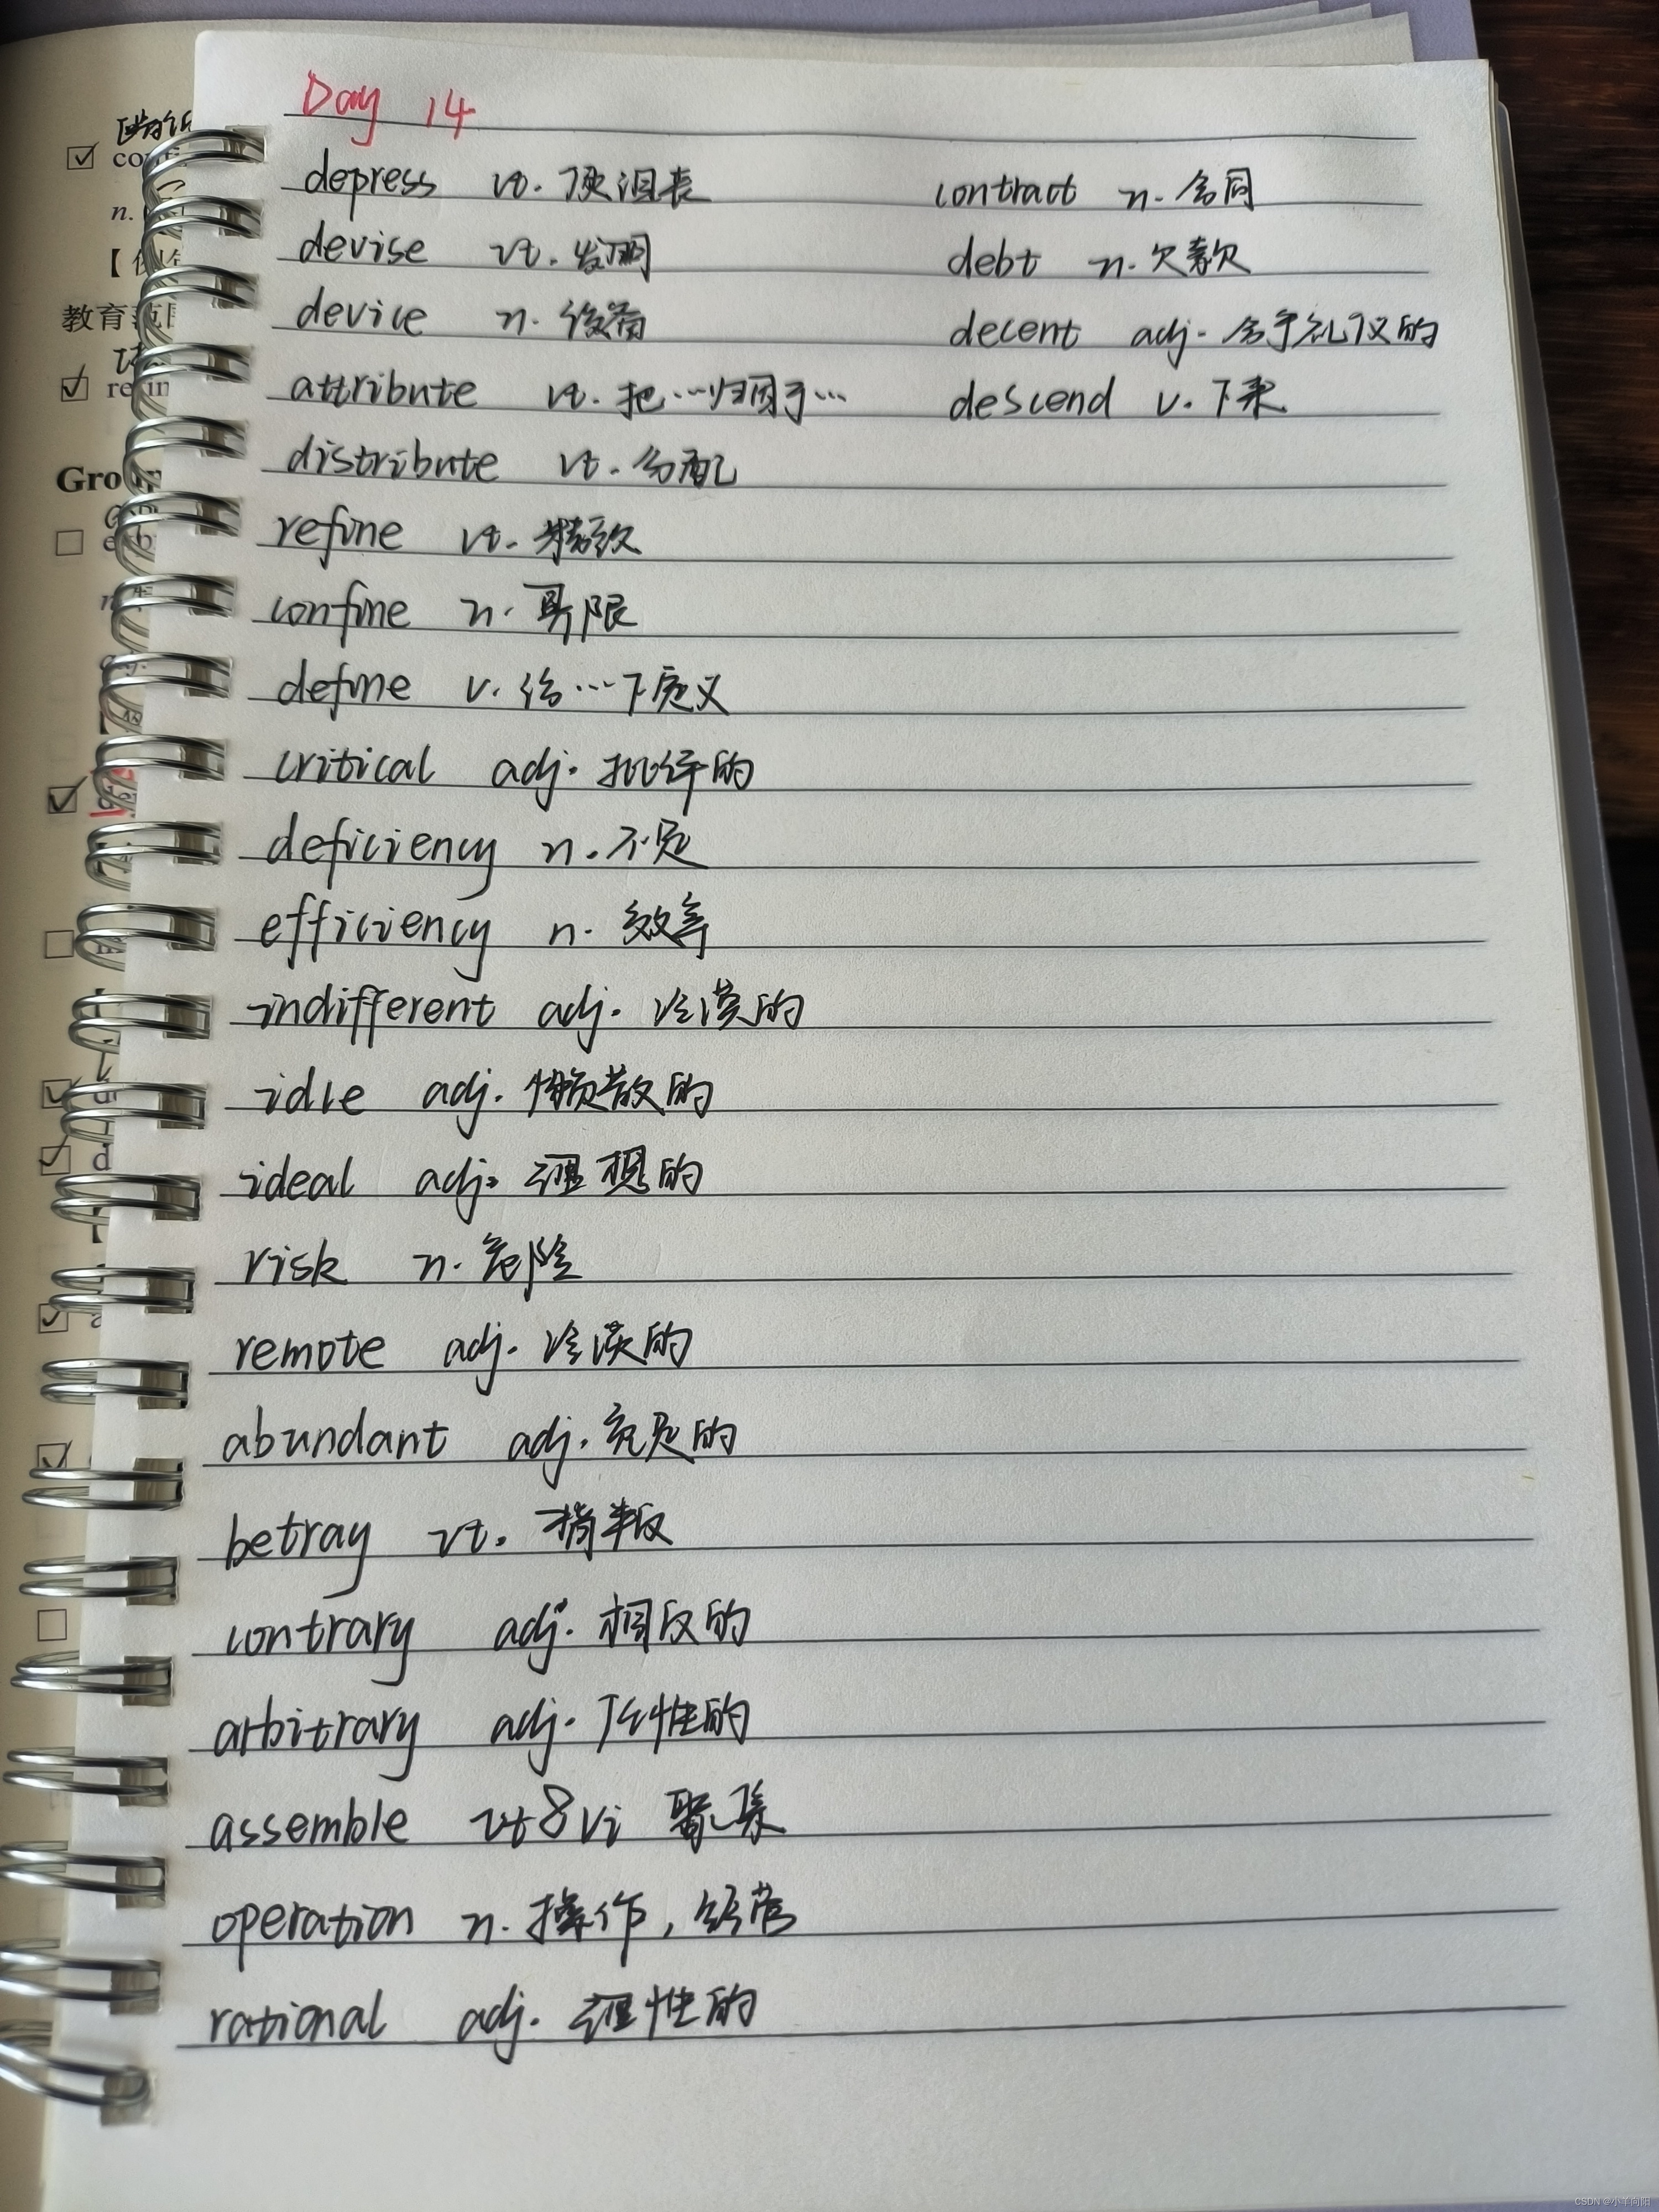 Day 14
depress vt. 使沮丧
devise vt. 发明
device n. 设备
attribute vt. 把…归因于…
distribute vt. 分配
refine vt. 精致
confine n. 界限
define v. 给…下定义
critical adj. 批评的
deficiency n. 不足
efficiency n. 效率
indifferent adj. 冷漠的
idle adj. 懒散的
ideal adj. 理想的
risk n. 危险
remote adj. 冷淡的
abundant adj. 充足的
betray vt. 背叛
contrary adj. 相反的
arbitrary adj. 任性的
assemble vt&vi 聚集
operation n. 操作, 经营
rational adj. 理性的
contract n. 合同
debt n. 欠款
decent adj. 合乎礼仪的
descend v. 下来
n.
教育范围
Group
d
CSDN @小羊向阳